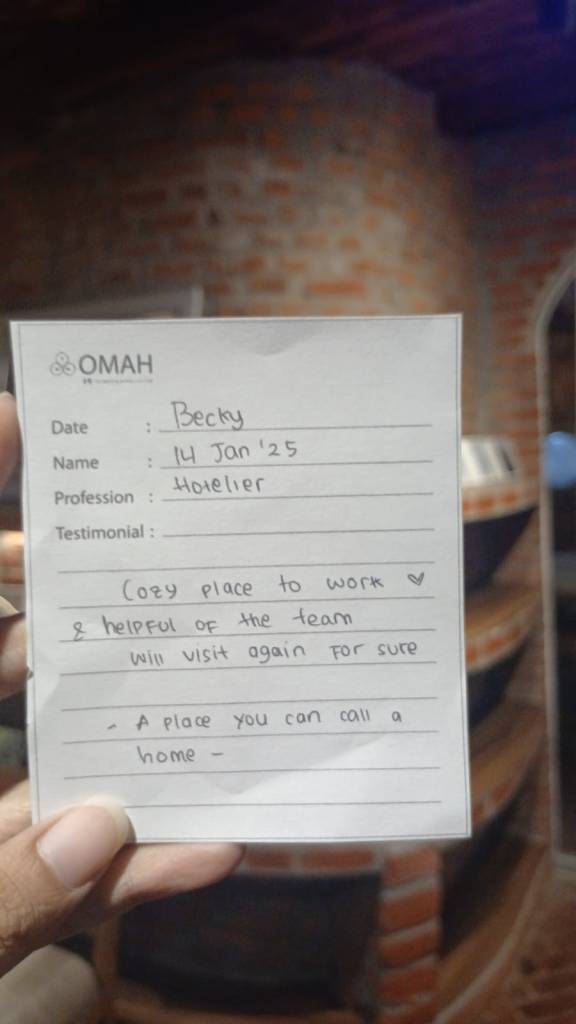 OMAH
Date : Becky
Name : 14 Jan '25
Profession : Hotelier
Testimonial :
Cozy place to work ♡
& helpful of the team
will visit again for sure
- A place you can call a
home -